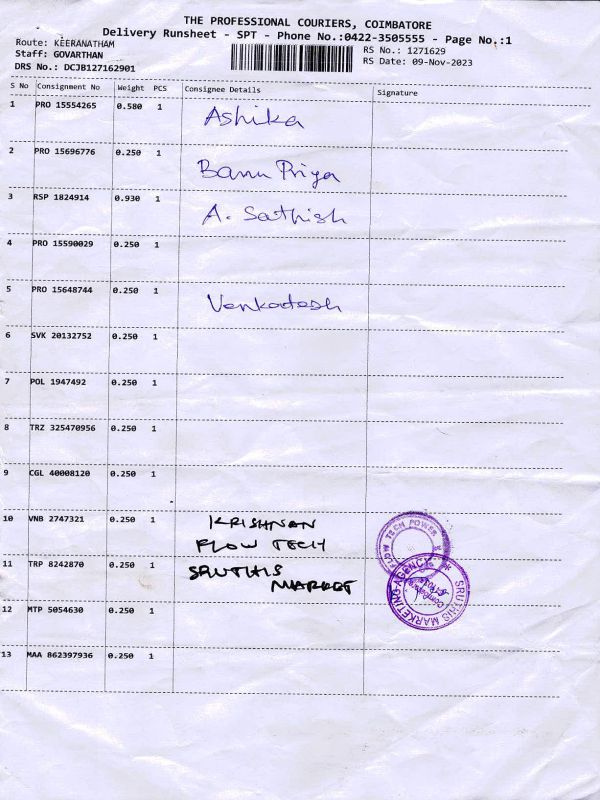 THE PROFESSIONAL COURIERS, COIMBATORE
Delivery Runsheet - SPT - Phone No.:0422-3505555 - Page No.:1
Route: KEERANATHAM
RS No.: 1271629
Staff: GOVARTHAN
RS Date: 09-Nov-2023
DRS No.: DCJB127162901
S No Consignment No Weight PCS Consignee Details Signature
1 PRO 15554265 0.580 1 Ashika
2 PRO 15696776 0.250 1 Banu Priya
3 RSP 1824914 0.930 1 A. Sathish
4 PRO 15590029 0.250 1
5 PRO 15648744 0.250 1 Venkatesh
6 SVK 20132752 0.250 1
7 POL 1947492 0.250 1
8 TRZ 325470956 0.250 1
9 CGL 40008120 0.250 1
10 VNB 2747321 0.250 1 KRISHNAN
FLOW TECH
FLOW TECH POWER
11 TRP 8242870 0.250 1 SRUTHIS
MARKET
SRUTHIS MARKETING AGENCY
12 MTP 5054630 0.250 1
13 MAA 862397936 0.250 1